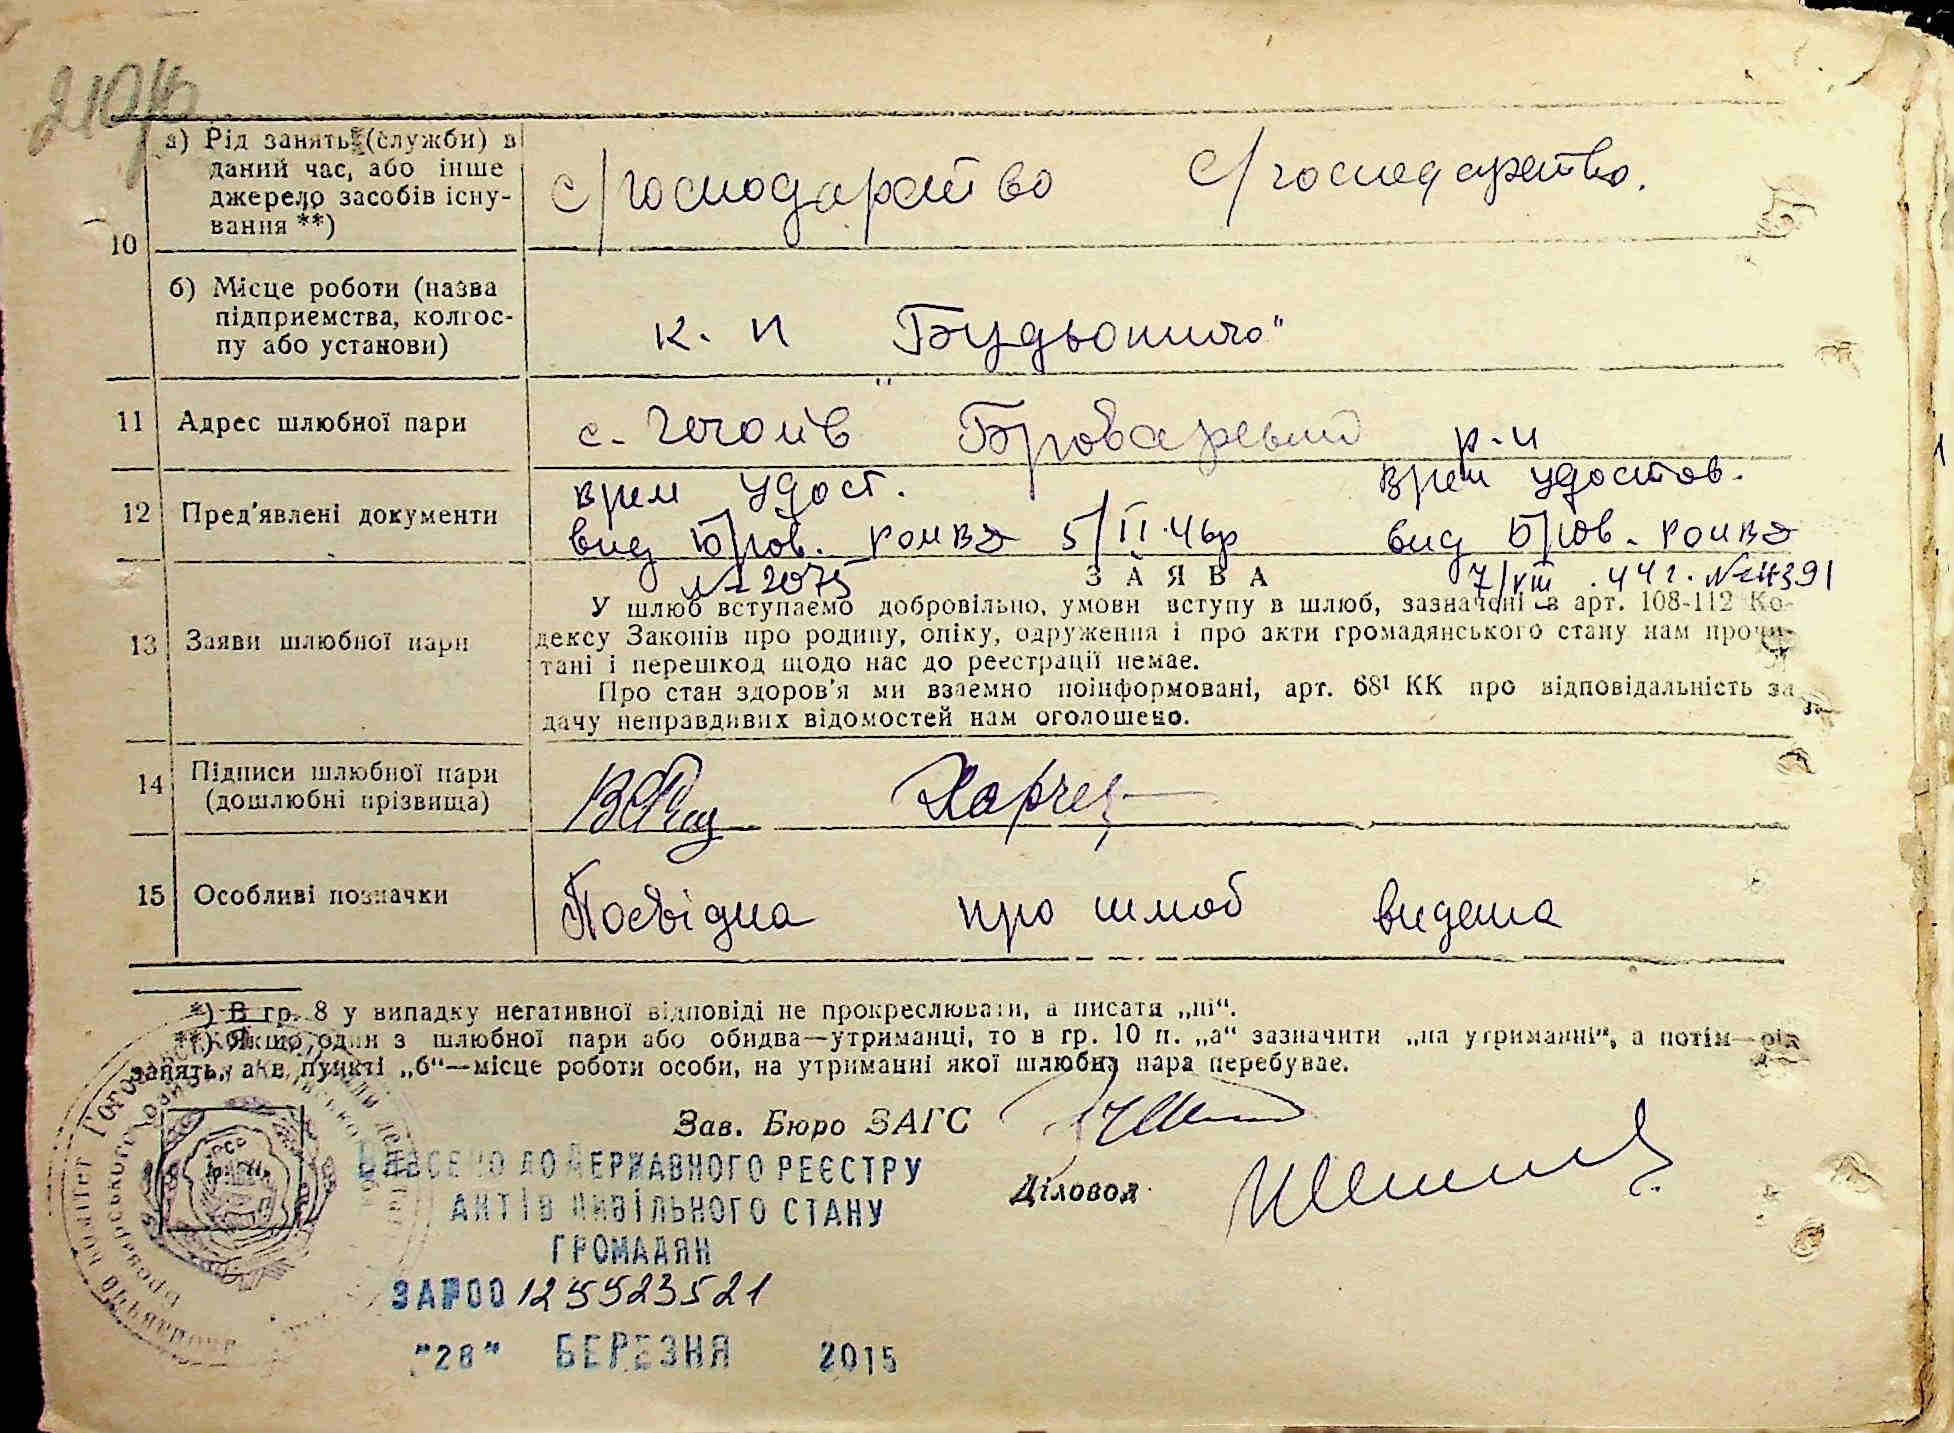 210/б
а) Рід занять (служби) в
даний час, або інше
джерело засобів існу-
вання **)
с/господарство с/господарство.
10
б) Місце роботи (назва
підприємства, колгос-
пу або установи)
к. п "Будьонного"
11 Адрес шлюбної пари
с. Гоголів Броварський р-н
12 Пред'явлені документи
врем удост. врем удостов.
вид Бров. РОМВД 5/II.46р вид Бров. РОМВД
№ 2075 7/VIII.44г. №
13 Заяви шлюбної пари
ЗАЯВА
У шлюб вступаємо добровільно, умови вступу в шлюб, зазначені в арт. 108-112 Ко-
дексу Законів про родину, опіку, одруження і про акти громадянського стану нам прочи-
тані і перешкод щодо нас до реєстрації немає.
Про стан здоров'я ми взаємно поінформовані, арт. 68¹ КК про відповідальність за
дачу неправдивих відомостей нам оголошено.
14 Підписи шлюбної пари
(дошлюбні прізвища)
Харчец
15 Особливі позначки
Посвідка про шлюб видана
*) В гр. 8 у випадку негативної відповіді не прокреслювати, а писати „ні“.
**) Якщо один з шлюбної пари або обидва—утриманці, то в гр. 10 п. „а“ зазначити „на утриманні“, а потім—рід
занять, а в пункті „б“—місце роботи особи, на утриманні якої шлюбна пара перебуває.
Зав. Бюро ЗАГС
Діловод
ВНЕСЕНО ДО ДЕРЖАВНОГО РЕЄСТРУ
АКТІВ ЦИВІЛЬНОГО СТАНУ
ГРОМАДЯН
ЗА №00125523521
"28" БЕРЕЗНЯ 2015